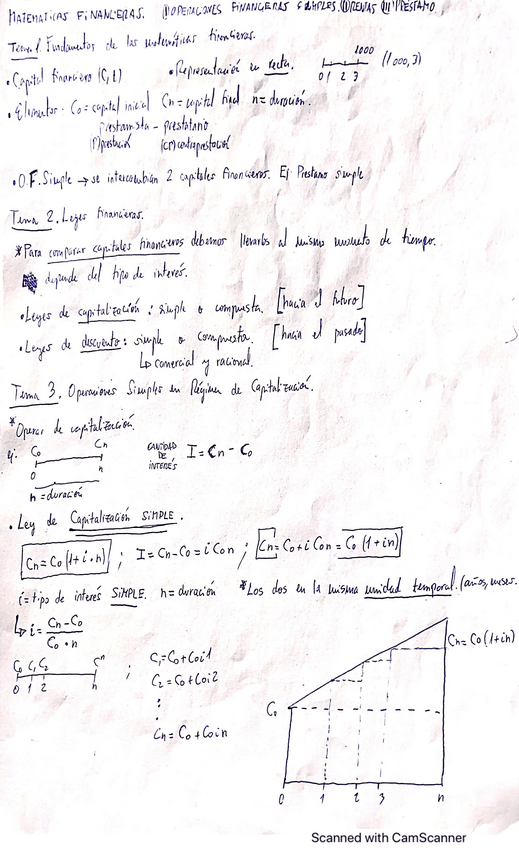 MATEMATICAS FINANCIERAS. (I) OPERACIONES FINANCIERAS SIMPLES. (II) RENTAS (III) PRESTAMO
Tema 1. Fundamentos de las matemáticas financieras.
• Capital financiero (C, t) • Representación en recta. 1000 0 1 2 3 (1000, 3)
• Elementos: C0 = capital inicial Cn = capital final n = duración.
prestamista - prestatario
(P) prestación (CP) contraprestación
• O.F. Simple → se intercambian 2 capitales financieros. Ej: Prestamo simple
Tema 2. Leyes financieras.
* Para comparar capitales financieros debemos llevarlos al mismo momento de tiempo.
depende del tipo de interés.
• Leyes de capitalización: simple o compuesta. [hacia el futuro]
• Leyes de descuento: simple o compuesta. [hacia el pasado]
↳ comercial y racional.
Tema 3. Operaciones Simples en Régimen de Capitalización.
* Operar de capitalización.
ej: C0 Cn CANTIDAD DE INTERÉS I = Cn - C0
0 n
n = duración
• Ley de Capitalización SIMPLE.
Cn = C0 (1 + i · n) ; I = Cn - C0 = i C0 n ; Cn = C0 + i C0 n = C0 (1 + in)
i = tipo de interés SIMPLE. n = duración * Los dos en la misma unidad temporal. (años, meses.
↳ i = Cn - C0 / C0 · n
C0 C1 C2 Cn ; C1 = C0 + C0 i 1
0 1 2 n C2 = C0 + C0 i 2
:
Cn = C0 + C0 i n
Cn = C0 (1 + in)
C0
0 1 2 3 n
Scanned with CamScanner